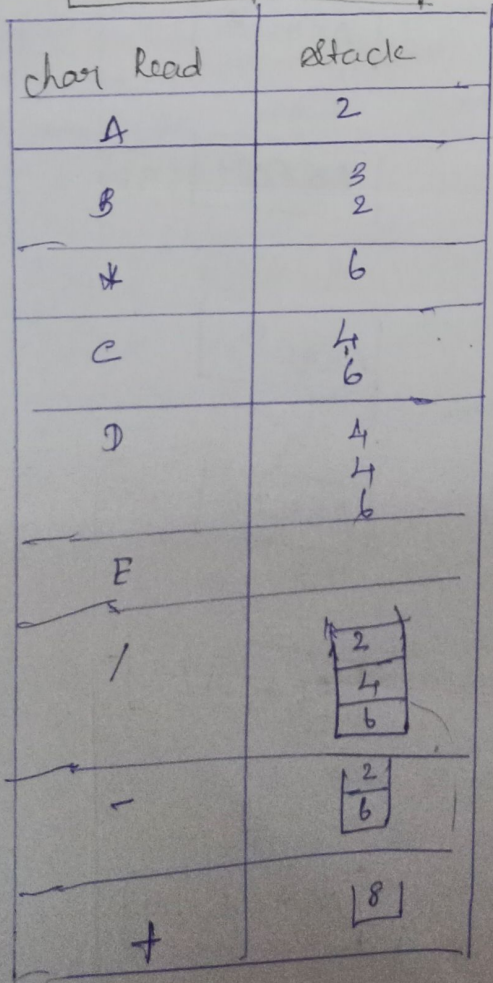 char Read Stack
A 2
B 3
2
* 6
C 4
6
D 4
4
6
E
/ 2
4
6
- 2
6
+ 8